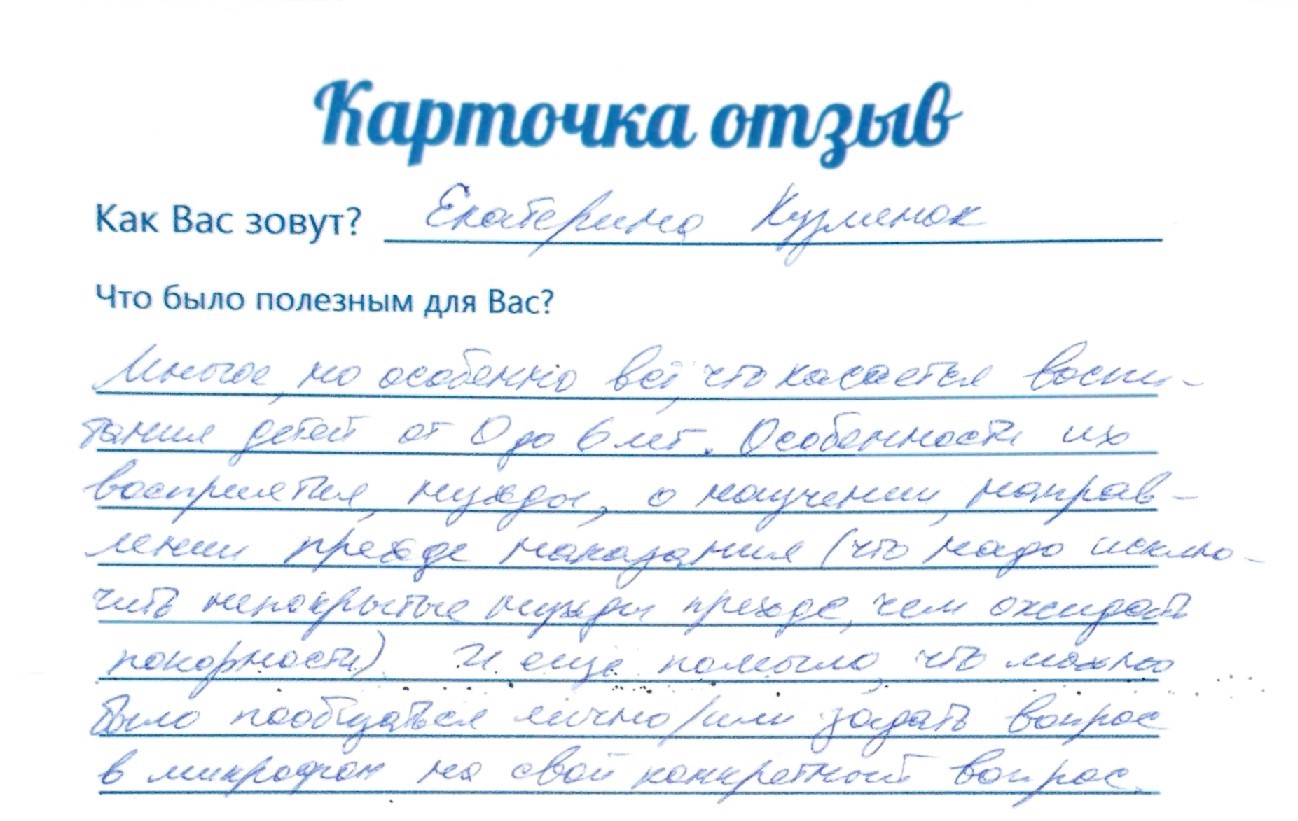 Карточка отзыв
Как Вас зовут? Екатерина Кузменок
Что было полезным для Вас?
Многое, но особенно всё, что касается воспи-
тания детей от 0 до 6 лет. Особенности их
восприятия, нужды, о научении, направ-
лении прежде наказания (что надо исклю-
чить непокрытые нужды прежде, чем ожидать
покорности). И еще помогло, что можно
было пообщаться лично/или задать вопрос
в микрофон на свой конкретный вопрос.